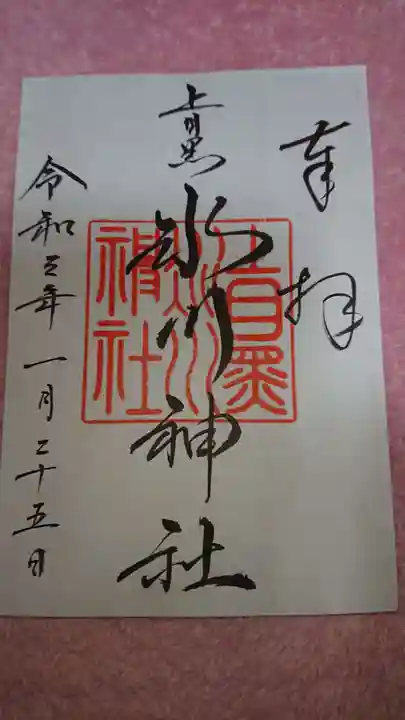 奉拝
上目黒
氷川神社
令和三年一月二十五日
上目黒
氷川
神社